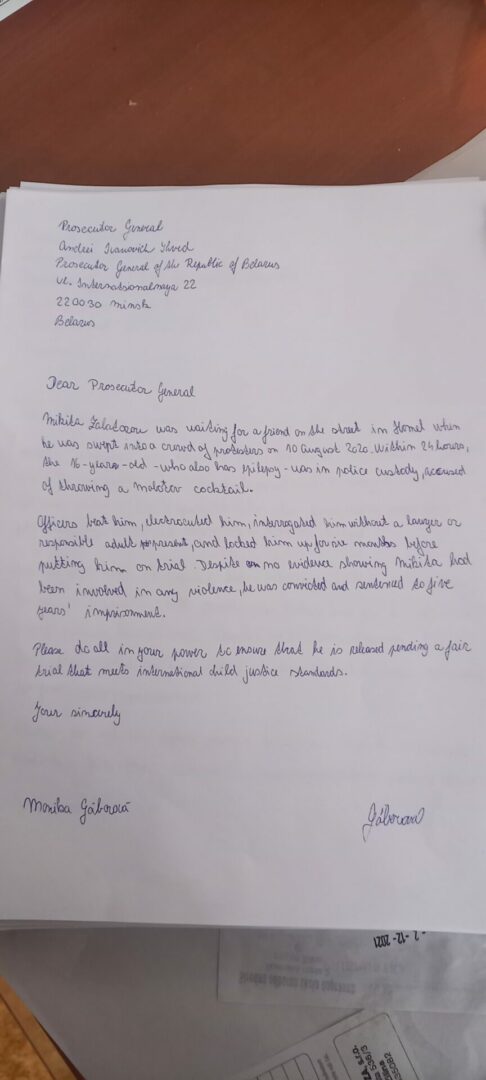 Prosecutor General
Andrei Ivanovich Shved
Prosecutor General of the Republic of Belarus
ul. Internatsionalnaya 22
220030 Minsk
Belarus
Dear Prosecutor General
Mikita Zalatarou was waiting for a friend on the street in Homel when
he was swept into a crowd of protesters on 10 August 2020. Within 24 hours,
the 16-years-old - who also has epilepsy - was in police custody, accused
of throwing a molotov cocktail.
Officers beat him, electrocuted him, interrogated him without a lawyer or
responsible adult present, and locked him up for six months before
putting him on trial. Despite no evidence showing Mikita had
been involved in any violence, he was convicted and sentenced to five
years' imprisonment.
Please do all in your power to ensure that he is released pending a fair
trial that meets international child justice standards.
Your sincerely
Monika Gáborová
Gáborová
-2-12-2021